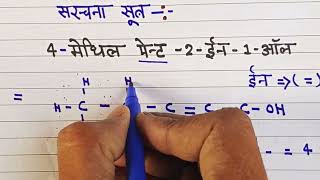 संरचना सूत्र :-
4-मेथिल पेन्ट-2-ईन-1-ऑल
ईन => (=)
H H
= H-C- -C=C-C-OH
= 4